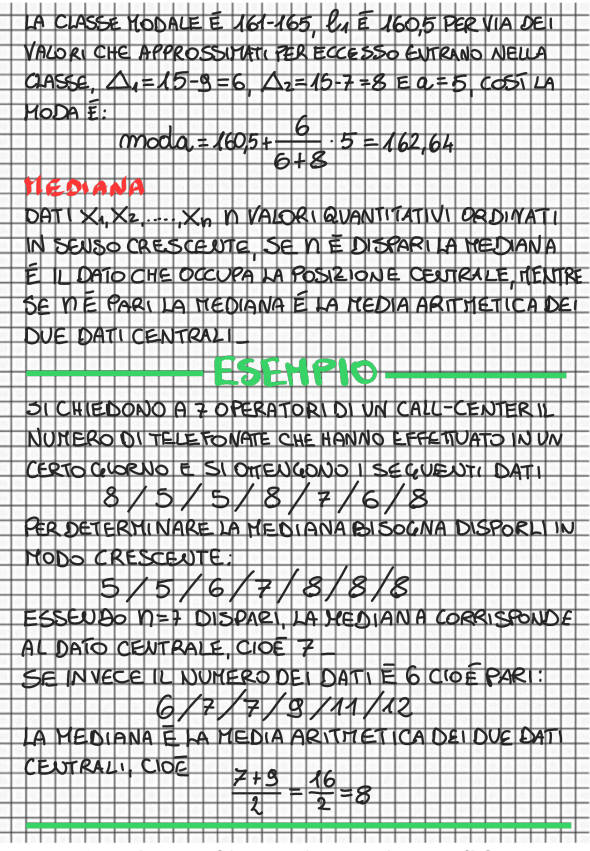 LA CLASSE MODALE È 161-165, l₁ È 160,5 PER VIA DEI
VALORI CHE APPROSSIMATI PER ECCESSO ENTRANO NELLA
CLASSE, Δ₁=15-9=6, Δ₂=15-7=8 E a=5, COSÌ LA
MODA È:
moda = 160,5 + 6/(6+8) · 5 = 162,64
MEDIANA
DATI X₁, X₂, ....., Xn n VALORI QUANTITATIVI ORDINATI
IN SENSO CRESCENTE, SE n È DISPARI LA MEDIANA
È IL DATO CHE OCCUPA LA POSIZIONE CENTRALE, MENTRE
SE n È PARI LA MEDIANA È LA MEDIA ARITMETICA DEI
DUE DATI CENTRALI_
ESEMPIO
SI CHIEDONO A 7 OPERATORI DI UN CALL-CENTER IL
NUMERO DI TELEFONATE CHE HANNO EFFETTUATO IN UN
CERTO GIORNO E SI OTTENGONO I SEGUENTI DATI
8 / 5 / 5 / 8 / 7 / 6 / 8
PER DETERMINARE LA MEDIANA BISOGNA DISPORLI IN
MODO CRESCENTE:
5 / 5 / 6 / 7 / 8 / 8 / 8
ESSENDO n=7 DISPARI, LA MEDIANA CORRISPONDE
AL DATO CENTRALE, CIOÈ 7_
SE INVECE IL NUMERO DEI DATI È 6 CIOÈ PARI:
6 / 7 / 7 / 9 / 11 / 12
LA MEDIANA È LA MEDIA ARITMETICA DEI DUE DATI
CENTRALI, CIOÈ
(7+9)/2 = 16/2 = 8